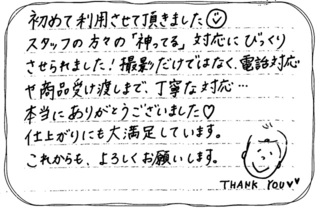 初めて利用させて頂きました☺
スタッフの方々の「神ってる」対応にびっくり
させられました！撮影だけではなく、電話対応
や商品受け渡しまで、丁寧な対応…
本当にありがとうございました♡
仕上がりにも大満足しています。
これからも、よろしくお願いします。
THANK YOU♥♥